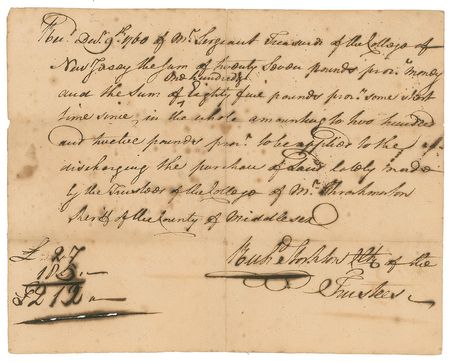 Recd. Decr. 9th 1760 of Mr. Sergeant Treasurer of the College of
New Jersey the Sum of twenty Seven pounds procn. money
one hundred &
and the Sum of Eighty five pounds procn. some short
time since, in the whole amounting to two hundred
and twelve pounds procn. to be applied to the
discharging the purchase of Land lately made
by the Trustees of the College of Mr. Throckmorton
Sheriff of the County of Middlesex
£ 27
185
£212
Richd. Stockton Clk of the
Trustees